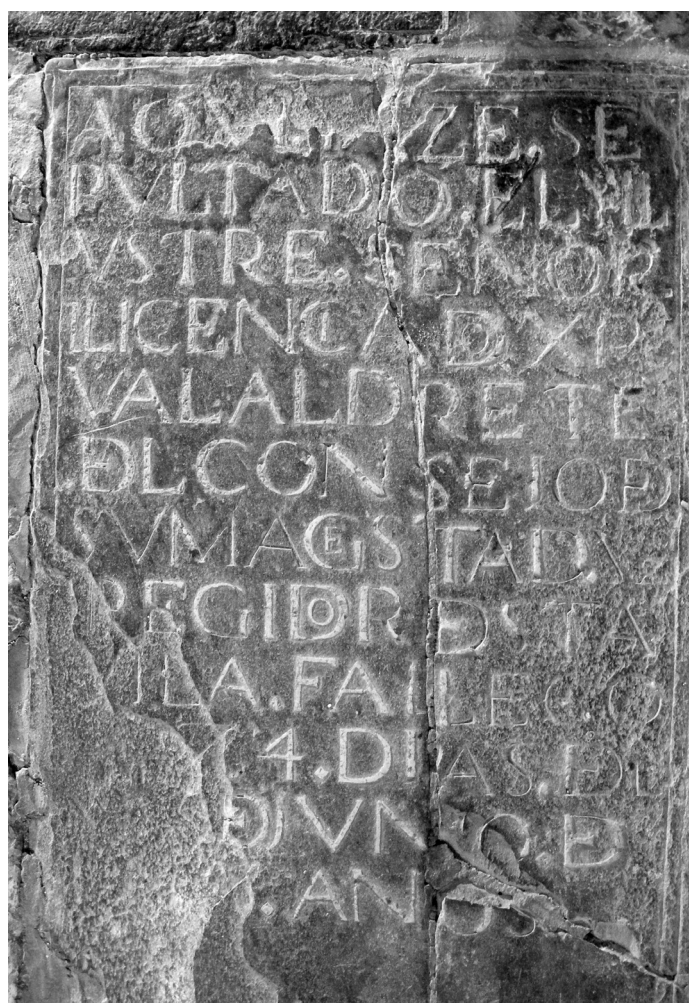 AQVI. IAZE. SE
PVLTADO. EL YIL
LVSTRE. SEÑOR.
LICENCIAD XP.
VALALDRETE
DL CONSEIO D
SV MAGESTAD. Y
REGIDOR DSTA
FALLECIO
4. DIAS. DL
D IVNIO. D
. ANOS